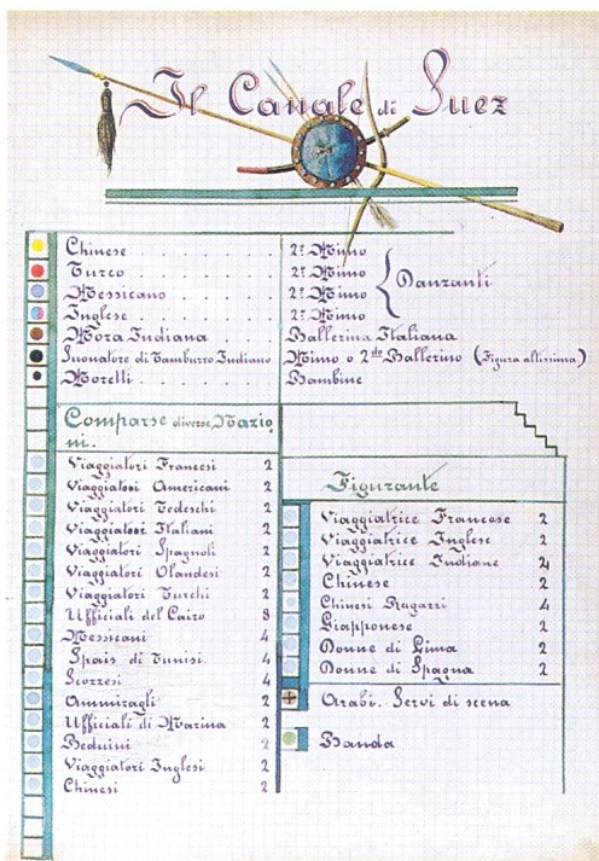 Il Canale di Suez
Chinese . . . . . . . 2º Mimo
Turco . . . . . . . 2º Mimo
Messicano . . . . . . 2º Mimo
Inglese . . . . . . . 2º Mimo
Danzanti
Mora Indiana . . . . . Ballerina Italiana
Suonatore di Tamburro Indiano Mimo o 2do Ballerino (Figura altissima)
Moretti . . . . . . . Bambine
Comparse diverse Nazio
ni.
Viaggiatori Francesi 2
Viaggiatori Americani 2
Viaggiatori Tedeschi 2
Viaggiatori Italiani 2
Viaggiatori Spagnoli 2
Viaggiatori Olandesi 2
Viaggiatori Turchi 2
Ufficiali del Cairo 8
Messicani 4
Spais di Tunisi. 4
Scozzesi 4
Ammiragli 2
Ufficiali di Marina 2
Beduini 2
Viaggiatori Inglesi 2
Chinesi 2
Figurante
Viaggiatrice Francese 2
Viaggiatrice Inglese 2
Viaggiatrice Indiane 4
Chinese 2
Chinesi Ragazzi 4
Giapponese 2
Donne di Lima 2
Donne di Spagna 2
Arabi. Servi di scena
Banda